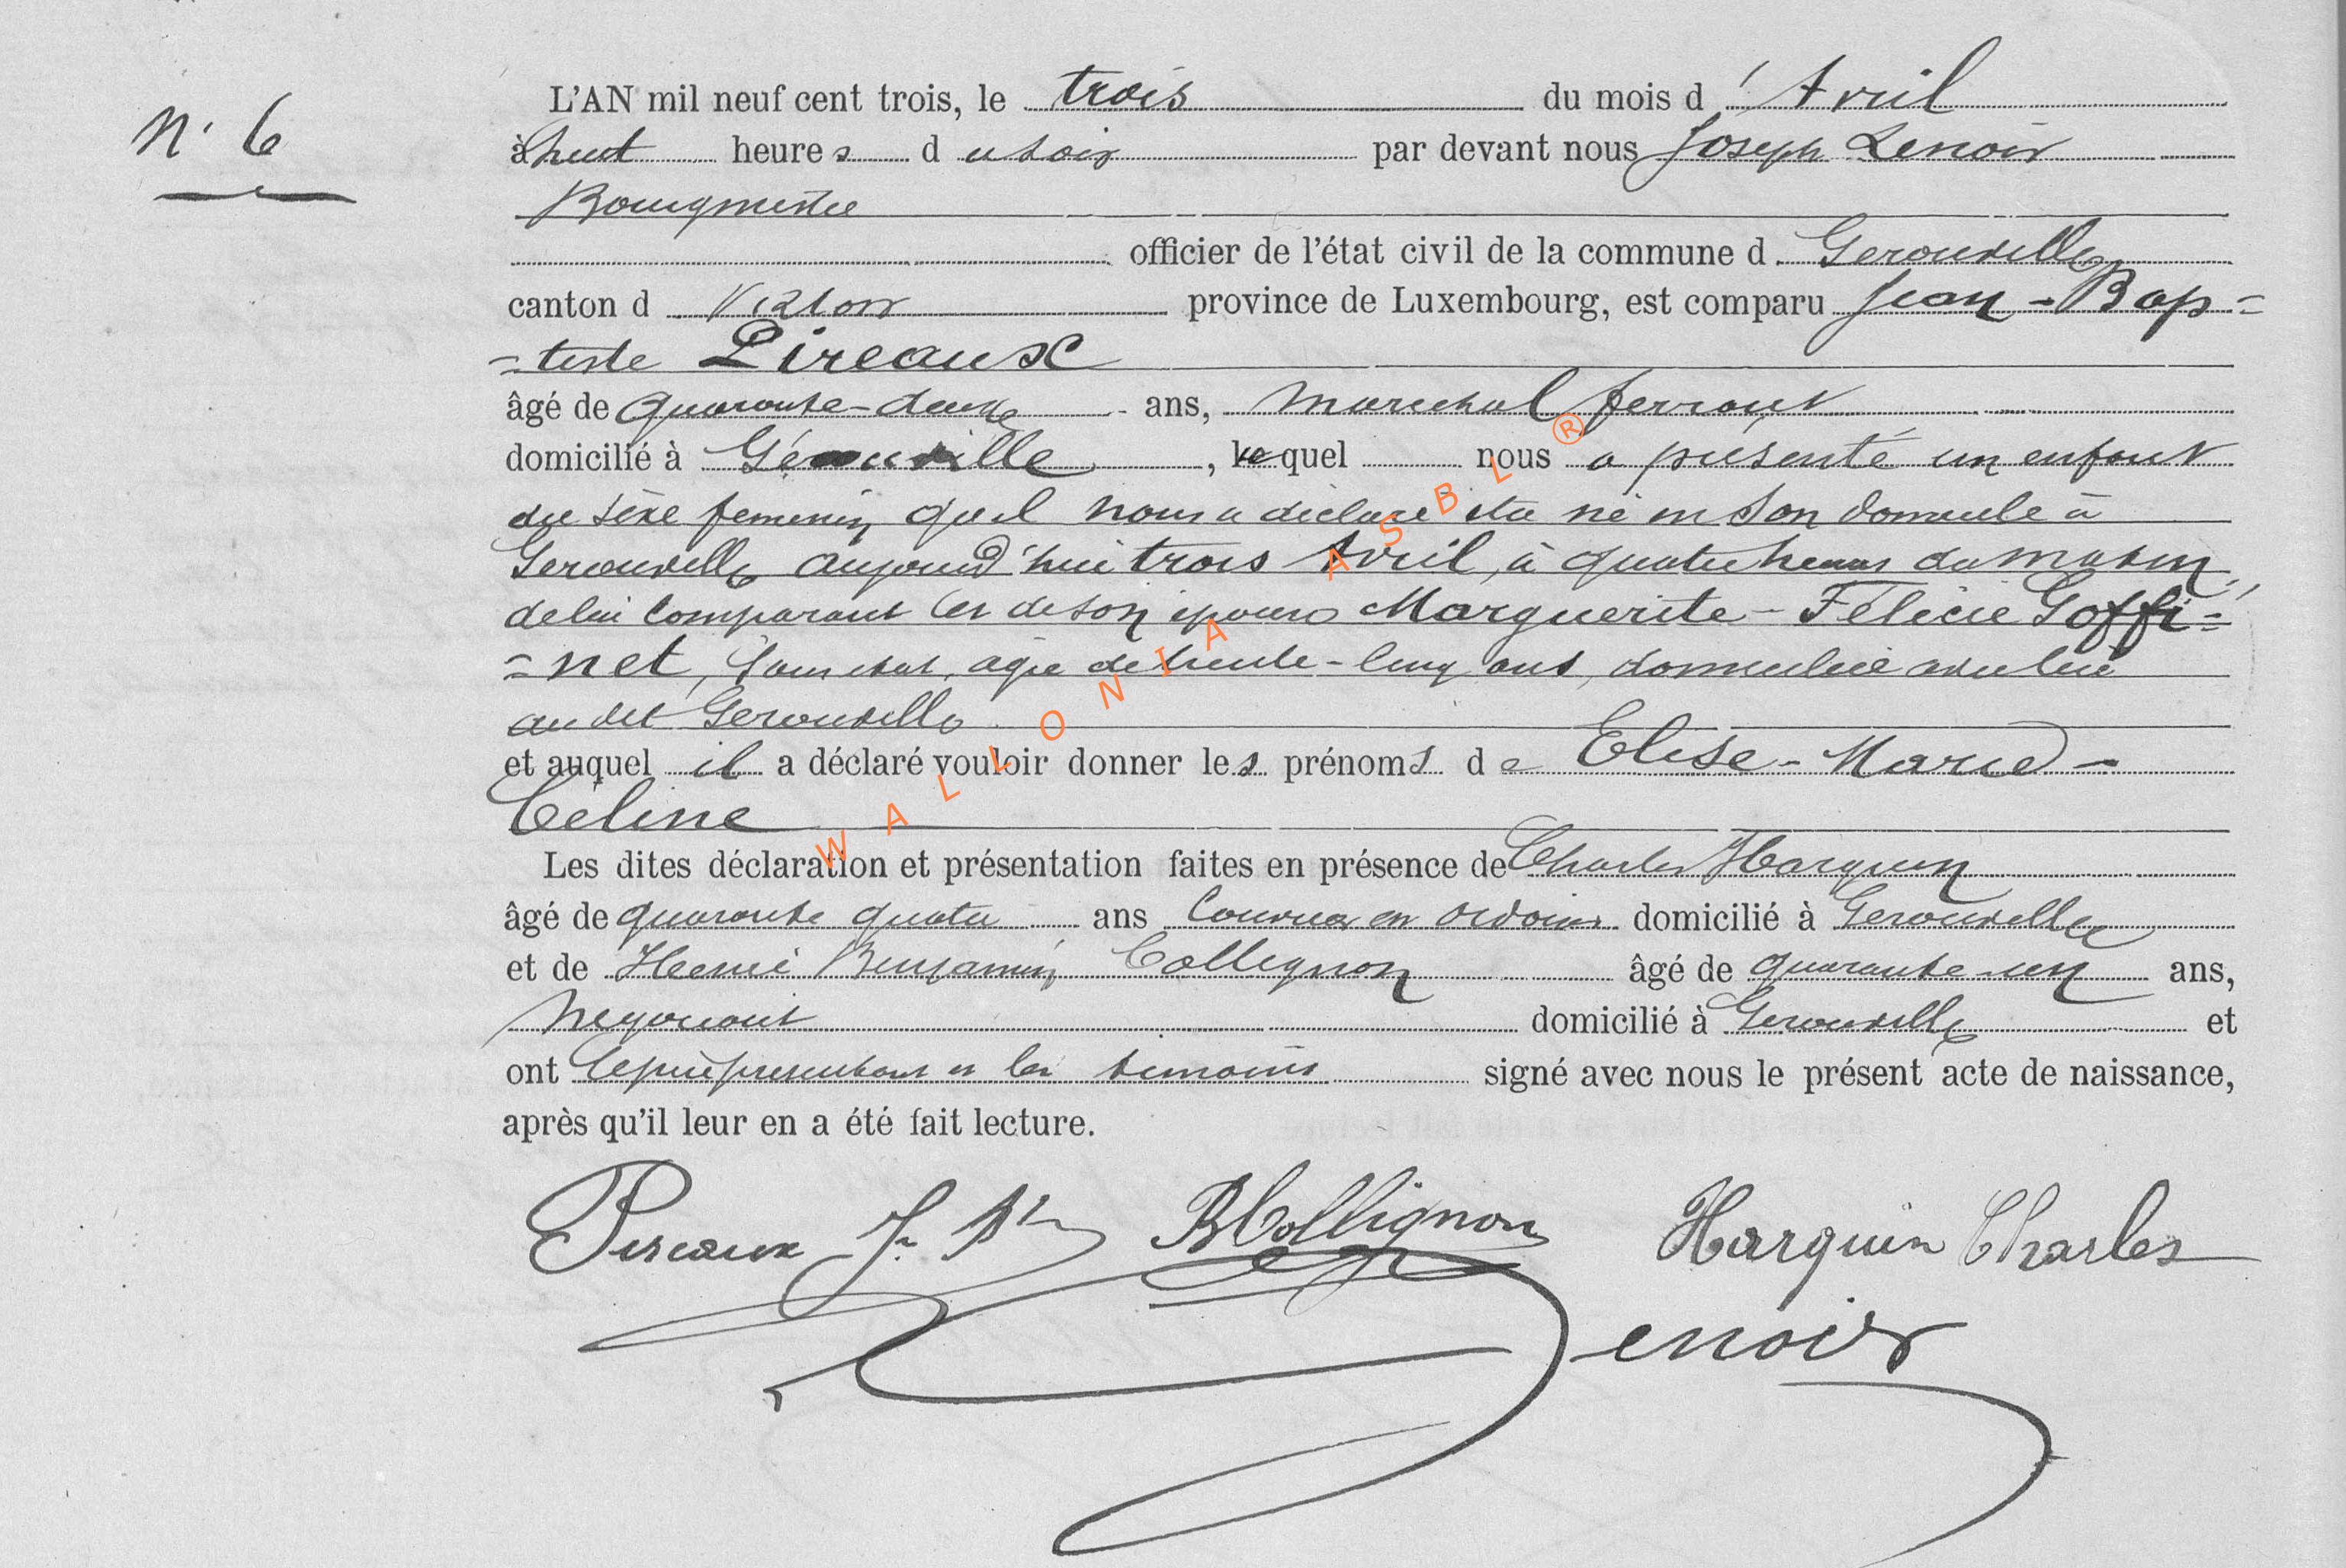 N° 6
L'AN mil neuf cent trois, le trois du mois d'Avril
à huit heures du soir par devant nous Joseph Lenoir
Bourgmestre
officier de l'état civil de la commune d Gerouville
canton d Virton province de Luxembourg, est comparu Jean-Bap=
=tiste Pireaux
âgé de quarante-deux ans, marechal ferrant
domicilié à Gérouville, lequel nous a présenté un enfant
du sexe feminin qu'il nous a déclaré être né en son domicile à
Gerouville aujourd'hui trois Avril, à quatre heures du matin,
de lui comparant et de son épouse Marguerite-Félicie Goffi=
=net, sans état, agée de trente-cinq ans, domiciliée avec lui
au dit Gerouville
et auquel il a déclaré vouloir donner les prénoms de Elise-Marie-
Céline
Les dites déclaration et présentation faites en présence de Charles Harquin
âgé de quarante quatre ans Couvreur en ardoises domicilié à Gerouville
et de Henri Benjamin Collignon âgé de quarante-un ans,
Negociant domicilié à Gerouville et
ont le père présentant et les témoins signé avec nous le présent acte de naissance,
après qu'il leur en a été fait lecture.
Pireaux J. Bte BCollignon Harquin Charles
Lenoir
WALLONIA ASBL ®